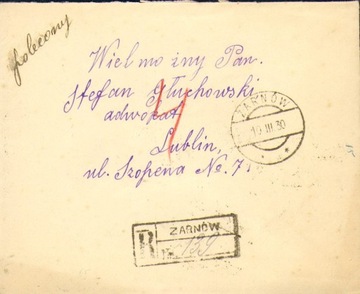 polecony
Wielmożny Pan.
Stefan Głuchowski
adwokat
Lublin,
ul. Szopena No. 7.
ŻARNÓW
19 III 30
R ŻARNÓW
No. 139